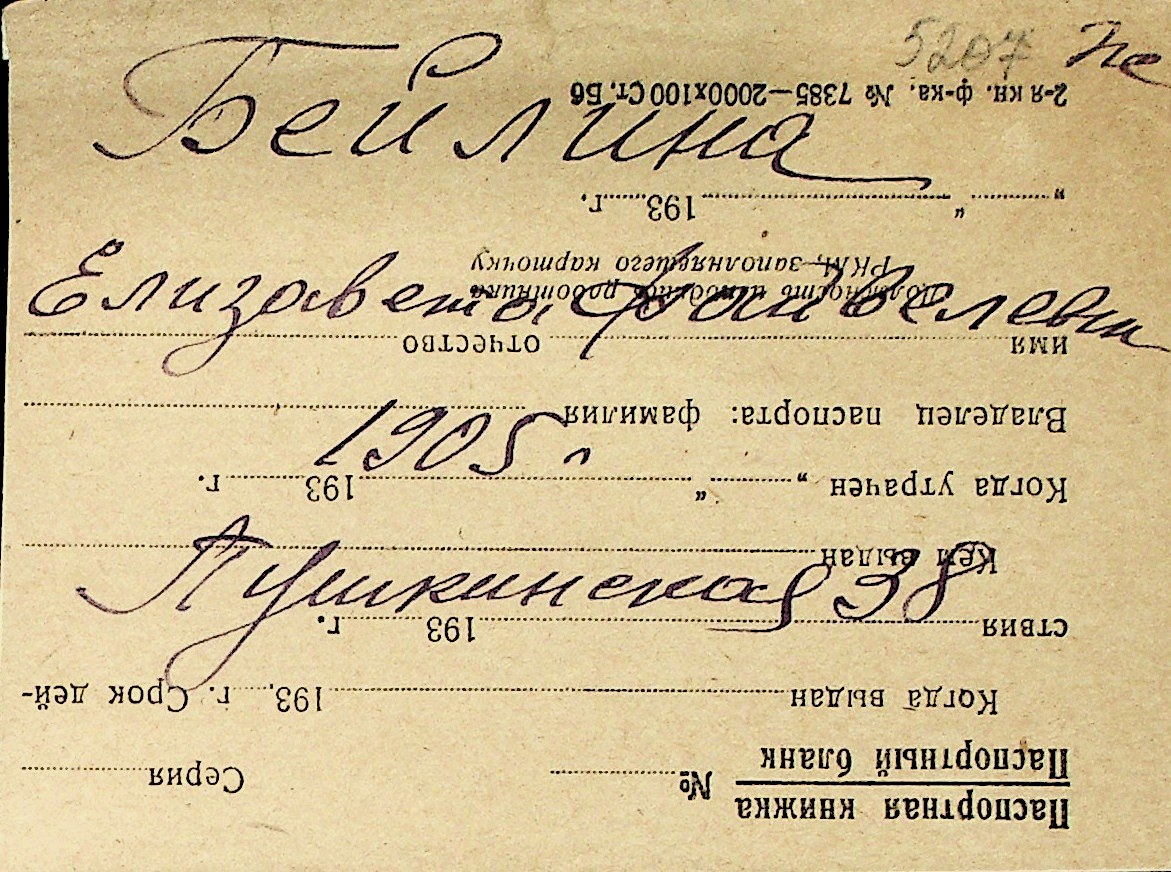 5207
Бейлина
Елизавета Файвелевн
1905 г
Пушкинская 38
Паспортная книжка
Паспортный бланк № Серия
Когда выдан 193 г. Срок дей-
ствия 193 г.
Кем выдан
Когда утрачен „ “ 193 г.
Владелец паспорта: фамилия
имя отчество
Должность и подпись работника
РКМ, заполнявшего карточку
„ “ 193 г.
2-я кн. ф-ка. № 7385—2000х100 Ст. Бб